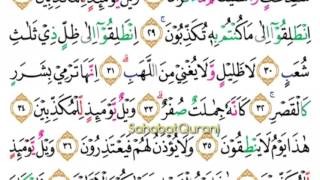 انْطَلِقُوْٓا اِلٰى مَا كُنْتُمْ بِهٖ تُكَذِّبُوْنَۚ ٢٩ اِنْطَلِقُوْٓا اِلٰى ظِلٍّ ذِيْ ثَلٰثِ
شُعَبٍ ٣٠ لَا ظَلِيْلٍ وَّلَا يُغْنِيْ مِنَ اللَّهَبِۗ ٣١ اِنَّهَا تَرْمِيْ بِشَرَرٍ
كَالْقَصْرِۚ ٣٢ كَاَنَّهٗ جِمٰلَتٌ صُفْرٌۗ ٣٣ وَيْلٌ يَّوْمَىِٕذٍ لِّلْمُكَذِّبِيْنَ ٣٤
SahabatQurani
هٰذَا يَوْمُ لَا يَنْطِقُوْنَۙ ٣٥ وَلَا يُؤْذَنُ لَهُمْ فَيَعْتَذِرُوْنَ ٣٦ وَيْلٌ يَّوْمَىِٕذٍ